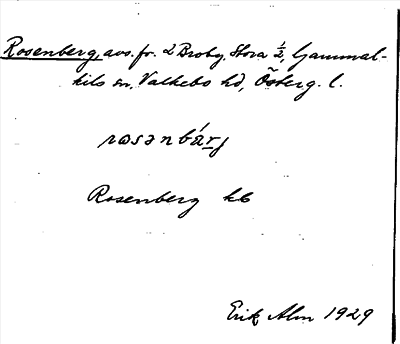 Rosenberg, avs. fr. 2 Broby, Stora ½, Gammal-
kils sn, Valkebo hd, Österg. l.
rosənbárj
Rosenberg kb
Erik Alm 1929